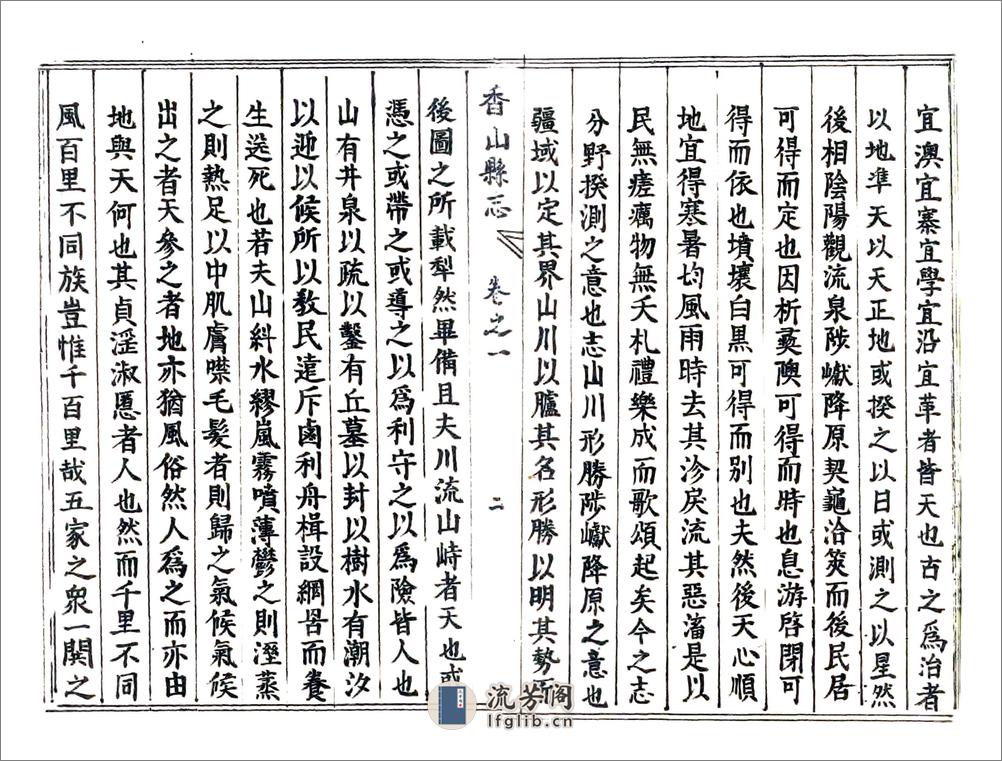 宜澳宜寨宜學宜沿宜革者皆天也古之爲治者
以地準天以天正地或揆之以日或測之以星然
後相陰陽觀流泉陟巘降原契龜洽筴而後民居
可得而定也因析夷隩可得而時也息游啓閉可
得而依也墳壤白黒可得而別也夫然後天心順
地宜得寒暑均風雨時去其沴戾流其惡潘是以
民無瘥癘物無夭札禮樂成而歌頌起矣今之志
分野揆測之意也志山川形勝陟巘降原之意也
疆域以定其界山川以臚其名形勝以明其勢
香山縣志 卷之一 二
後圖之所載犁然畢備且夫川流山峙者天也或
憑之或帶之或導之以爲利守之以爲險皆人也
山有井泉以疏以鑿有丘墓以封以樹水有潮汐
以迎以候所以教民遠斥鹵利舟楫設網罟而養
生送死也若夫山糾水繆嵐霧噴薄鬱之則溼蒸
之則熱足以中肌膚㗲毛髮者則歸之氣候氣候
出之者天參之者地亦猶風俗然人爲之而亦由
地與天何也其貞淫淑慝者人也然而千里不同
風百里不同族豈惟千百里哉五家之衆一閧之
流芳阁
lfglib.cn